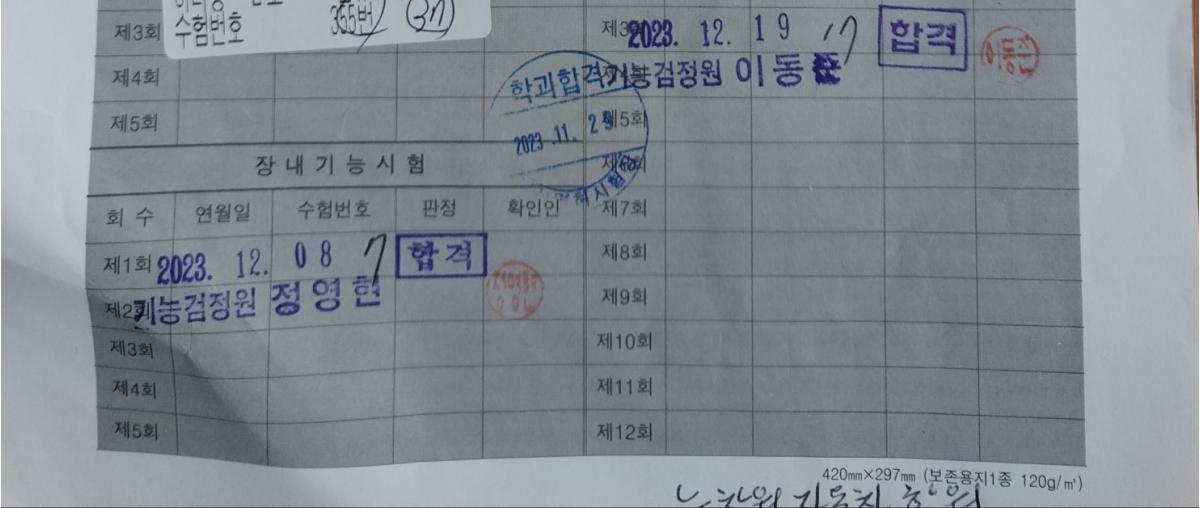 수험번호 355번 37
제3회
제4회
제5회
장내기능시험
회수 연월일 수험번호 판정 확인인
제1회 2023. 12. 08 7 합격
제2회 기능검정원 정영현
제3회
제4회
제5회
학과합격
2023.11.29
제3회 2023. 12. 19 17 합격
기능검정원 이동
제5회
제6회
제7회
제8회
제9회
제10회
제11회
제12회
420㎜×297㎜ (보존용지1종 120g/㎡)
자동차 학원